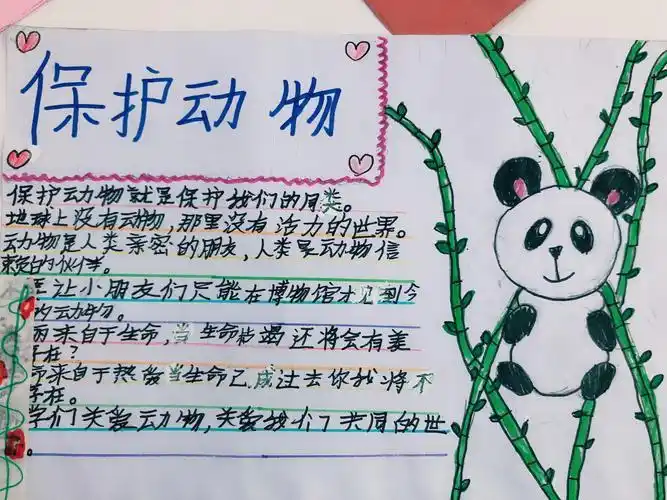 保护动物
保护动物就是保护我们的同类。
地球上没有动物,那里没有活力的世界。
动物是人类亲密的朋友,人类是动物信
赖的伙伴。
让小朋友们只能在博物馆才见到今
的动物。
来自于生命,当生命枯竭还将会有美
存在?
命来自于热爱当生命已成过去你我将不
存在。
学们关爱动物,关爱我们共同的世
。